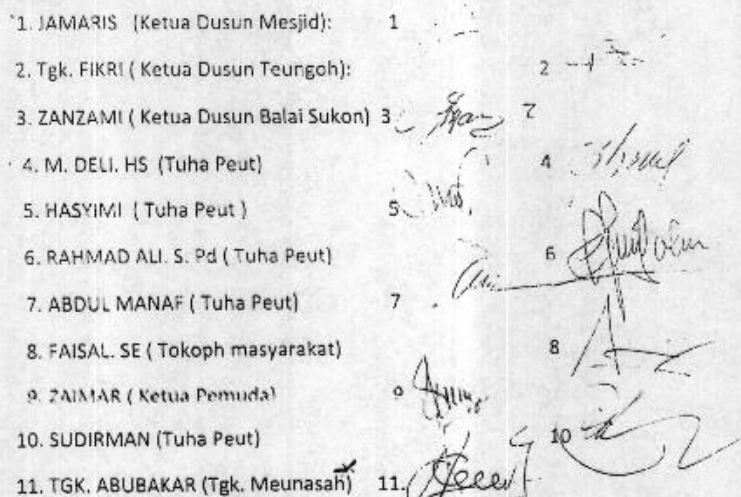 1. JAMARIS (Ketua Dusun Mesjid): 1
2. Tgk. FIKRI ( Ketua Dusun Teungoh): 2
3. ZANZAMI ( Ketua Dusun Balai Sukon) 3
4. M. DELI. HS (Tuha Peut) 4
5. HASYIMI ( Tuha Peut ) 5
6. RAHMAD ALI. S. Pd ( Tuha Peut) 6
7. ABDUL MANAF ( Tuha Peut) 7
8. FAISAL. SE ( Tokoph masyarakat) 8
9. ZAIMAR ( Ketua Pemuda) 9
10. SUDIRMAN (Tuha Peut) 10
11. TGK. ABUBAKAR (Tgk. Meunasah) 11.